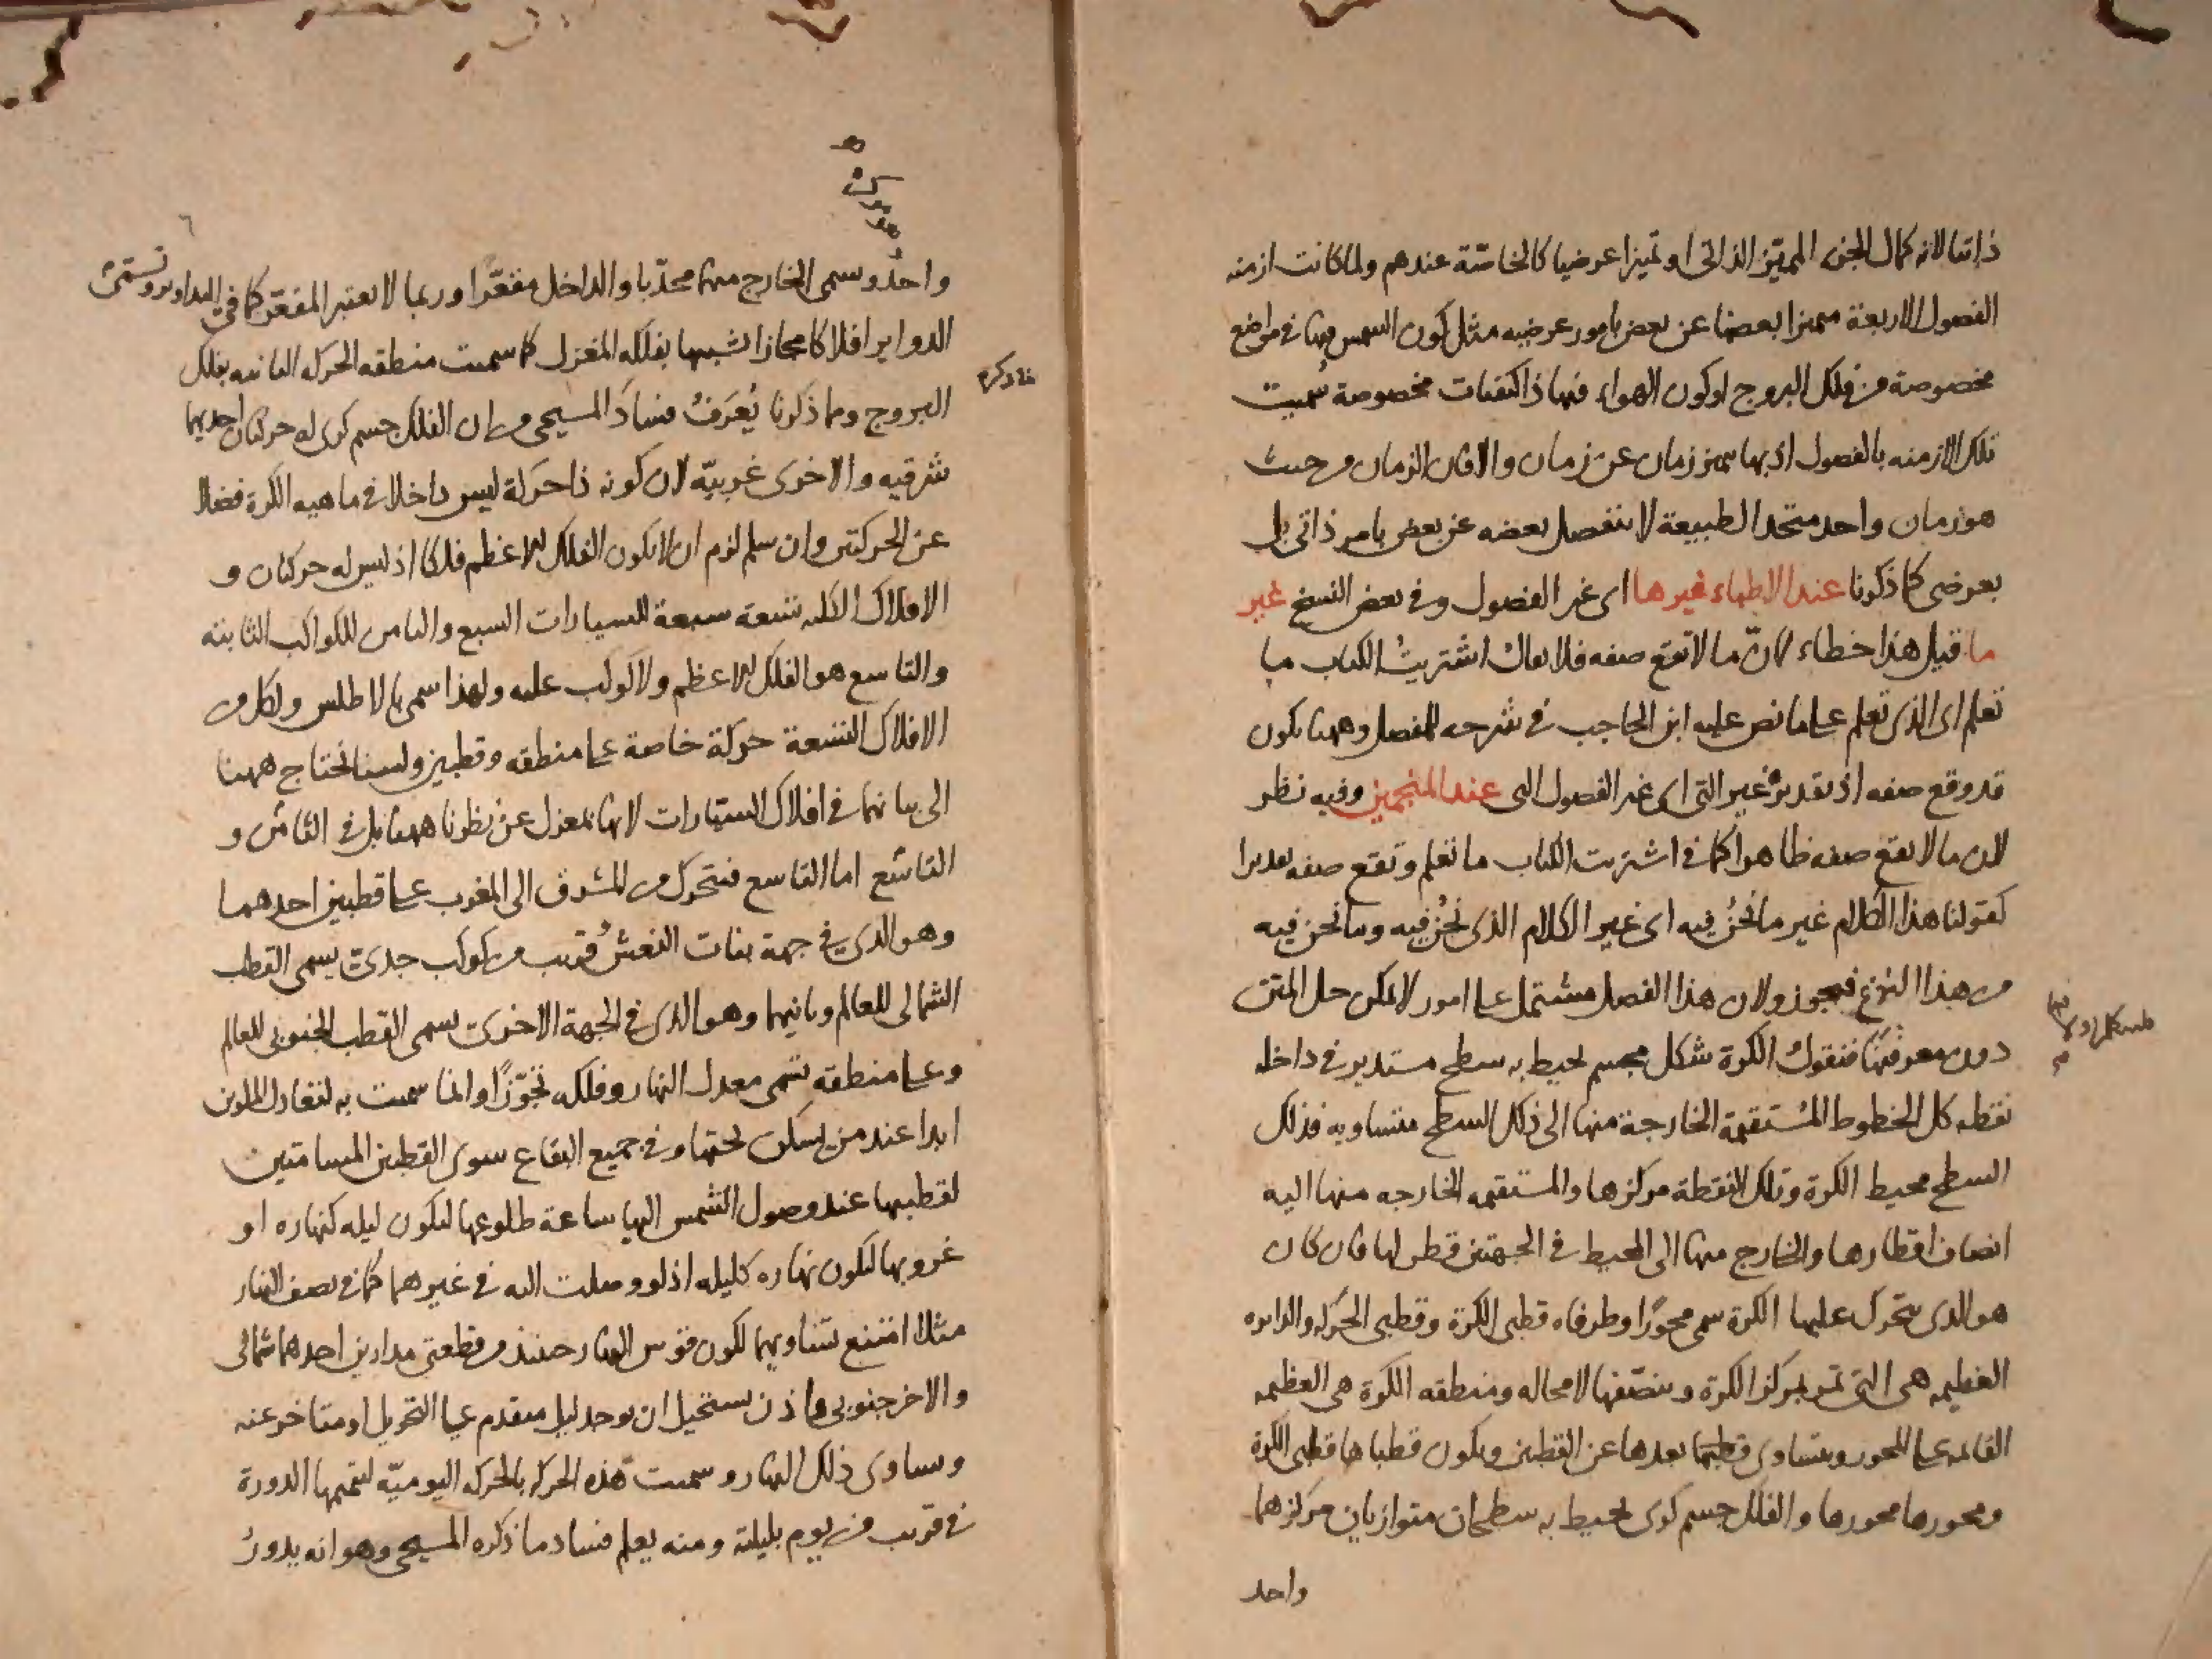 ذاتيا لانه كمال الجزء المميز الذاتى او تميزا عرضيا كالخاصّة عندهم ولما كانت ازمنه
الفصول الاربعة متميزا بعضها عن بعض بامور عرضيه مثل كون الشمس فيها فى مواضع
مخصوصة من فلك البروج او كون الهواء فيها ذا كيفيات مخصوصة سُميت
تلك الازمنه بالفصول اذ بها يتميز زمان عن زمان والا فان الزمان من حيث
هو زمان واحد متحد الطبيعة لا ينفصل بعضه عن بعض بامر ذاتى بل
بعرضى كما ذكرنا عند الاطباء غيرها اى غير الفصول وفى بعض النسخ غير
ما قيل هذا خطاء لانّ ما لا تقع صفه فلا يقال اشتريت الكتاب ما
تعلم اى الذى تعلم على ما نص عليه ابن الحاجب فى شرحه للمفصل وههنا يكون
قد وقع صفه اذ تقديره غير التى اى غير الفصول التى عند المنجمين وفيه نظر
لان ما لا يقع صفه ظاهرا كما فى اشتريت الكتاب ما تعلم وتقع صفه تقديرا
كقولنا هذا الكلام غير ما نحنُ فيه اى غير الكلام الذى نحنُ فيه وما نحن فيه
من هذا النوع فيجوز ولان هذا الفصل مشتمل على امور لا يمكن حل المتن
دون معرفتها فنقول الكرة شكل مجسم يحيط به سطح مستدير فى داخله
نقطه كل الخطوط المستقيمة الخارجة منها الى ذلك السطح متساويه فذلك
السطح محيط الكرة وتلك النقطة مركزها والمستقيمه الخارجه منها اليه
انصاف اقطارها والخارج منها الى المحيط فى الجهتين قطر لها فان كان
هو الذى يتحرك عليها الكرة سمى محورًا وطرفاه قطبى الكرة وقطبى الحركه والدايره
العظيمه هى التى تمر بمركز الكرة وينصّفها لا محاله ومنطقه الكرة هى العظيمه
القائمه على المحور ويتساوى بعدها عن القطبين ويكون قطباها قطبى الكرة
ومحورها محورها والفلك جسم كرى يحيط به سطحان متوازيان مركزهما
واحد
واحد وسمى الخارج منهما محدّبا والداخل مقعّرا وربما لا يعتبر المقعّر كما فى التداوير وتسمى
الدواير افلاكا مجازا تشبيها بفلكه المغزل كما سميت منطقه الحركه الثانيه بفلك
البروج ومما ذكرنا يُعرَفُ فسادُ المسيحى من ان الفلك جسم كرى له حركتان احديهما
ما ذكره
شرقيه والاخرى غربيّة لان كونه ذا حركة ليس داخلا فى ماهيه الكرة فضلا
عن الحركتين وان سلم لزم ان لا يكون الفلك الاعظم فلكا اذ ليس له حركتان و
الافلاك الكليه تسعة سبعة للسيارات السبع والثامن للكواكب الثابته
والتاسع هو الفلك الاعظم ولا كوكب عليه ولهذا سمى بالاطلس ولكل من
الافلاك التسعة حركة خاصة على منطقه وقطبين ولسنا نحتاج ههنا
الى بيانها فى افلاك السيّارات لانها بمعزل عن نظرنا ههنا بل فى الثامن و
التاسع اما التاسع فيتحرك من المشرق الى المغرب على قطبين احدهما
وهو الذى فى جهة بنات النعش قريب من كوكب جدى يسمى القطب
الشمالى للعالم وثانيهما وهو الذى فى الجهة الاخرى يسمى القطب الجنوبى للعالم
وعلى منطقه تسمى معدل النهار وفلكه تجوّزًا وانما سميت به لتعادل الملوين
ابدا عند من يسكن تحتها وفى جميع البقاع سوى القطبين المسامتين
لقطبيها عند وصول الشمس اليها ساعة طلوعها ليكون ليله كنهاره او
غروبها ليكون نهاره كليله اذ لو وصلت اليه فى غيرهما كما فى نصف النهار
مثلا امتنع تساويهما لكون قوس النهار حينئذ من قطعتى مدارين احدهما شمالى
والاخر جنوبى فاذن يستحيل ان يوجد ليل متقدم على التحويل او متاخر عنه
وساوى ذلك النهار وسميت هذه الحركه بالحركه اليوميّه لتتميمها الدورة
فى قريب من يوم بليلته ومنه يعلم فساد ما ذكره المسيحى وهو انه يدور